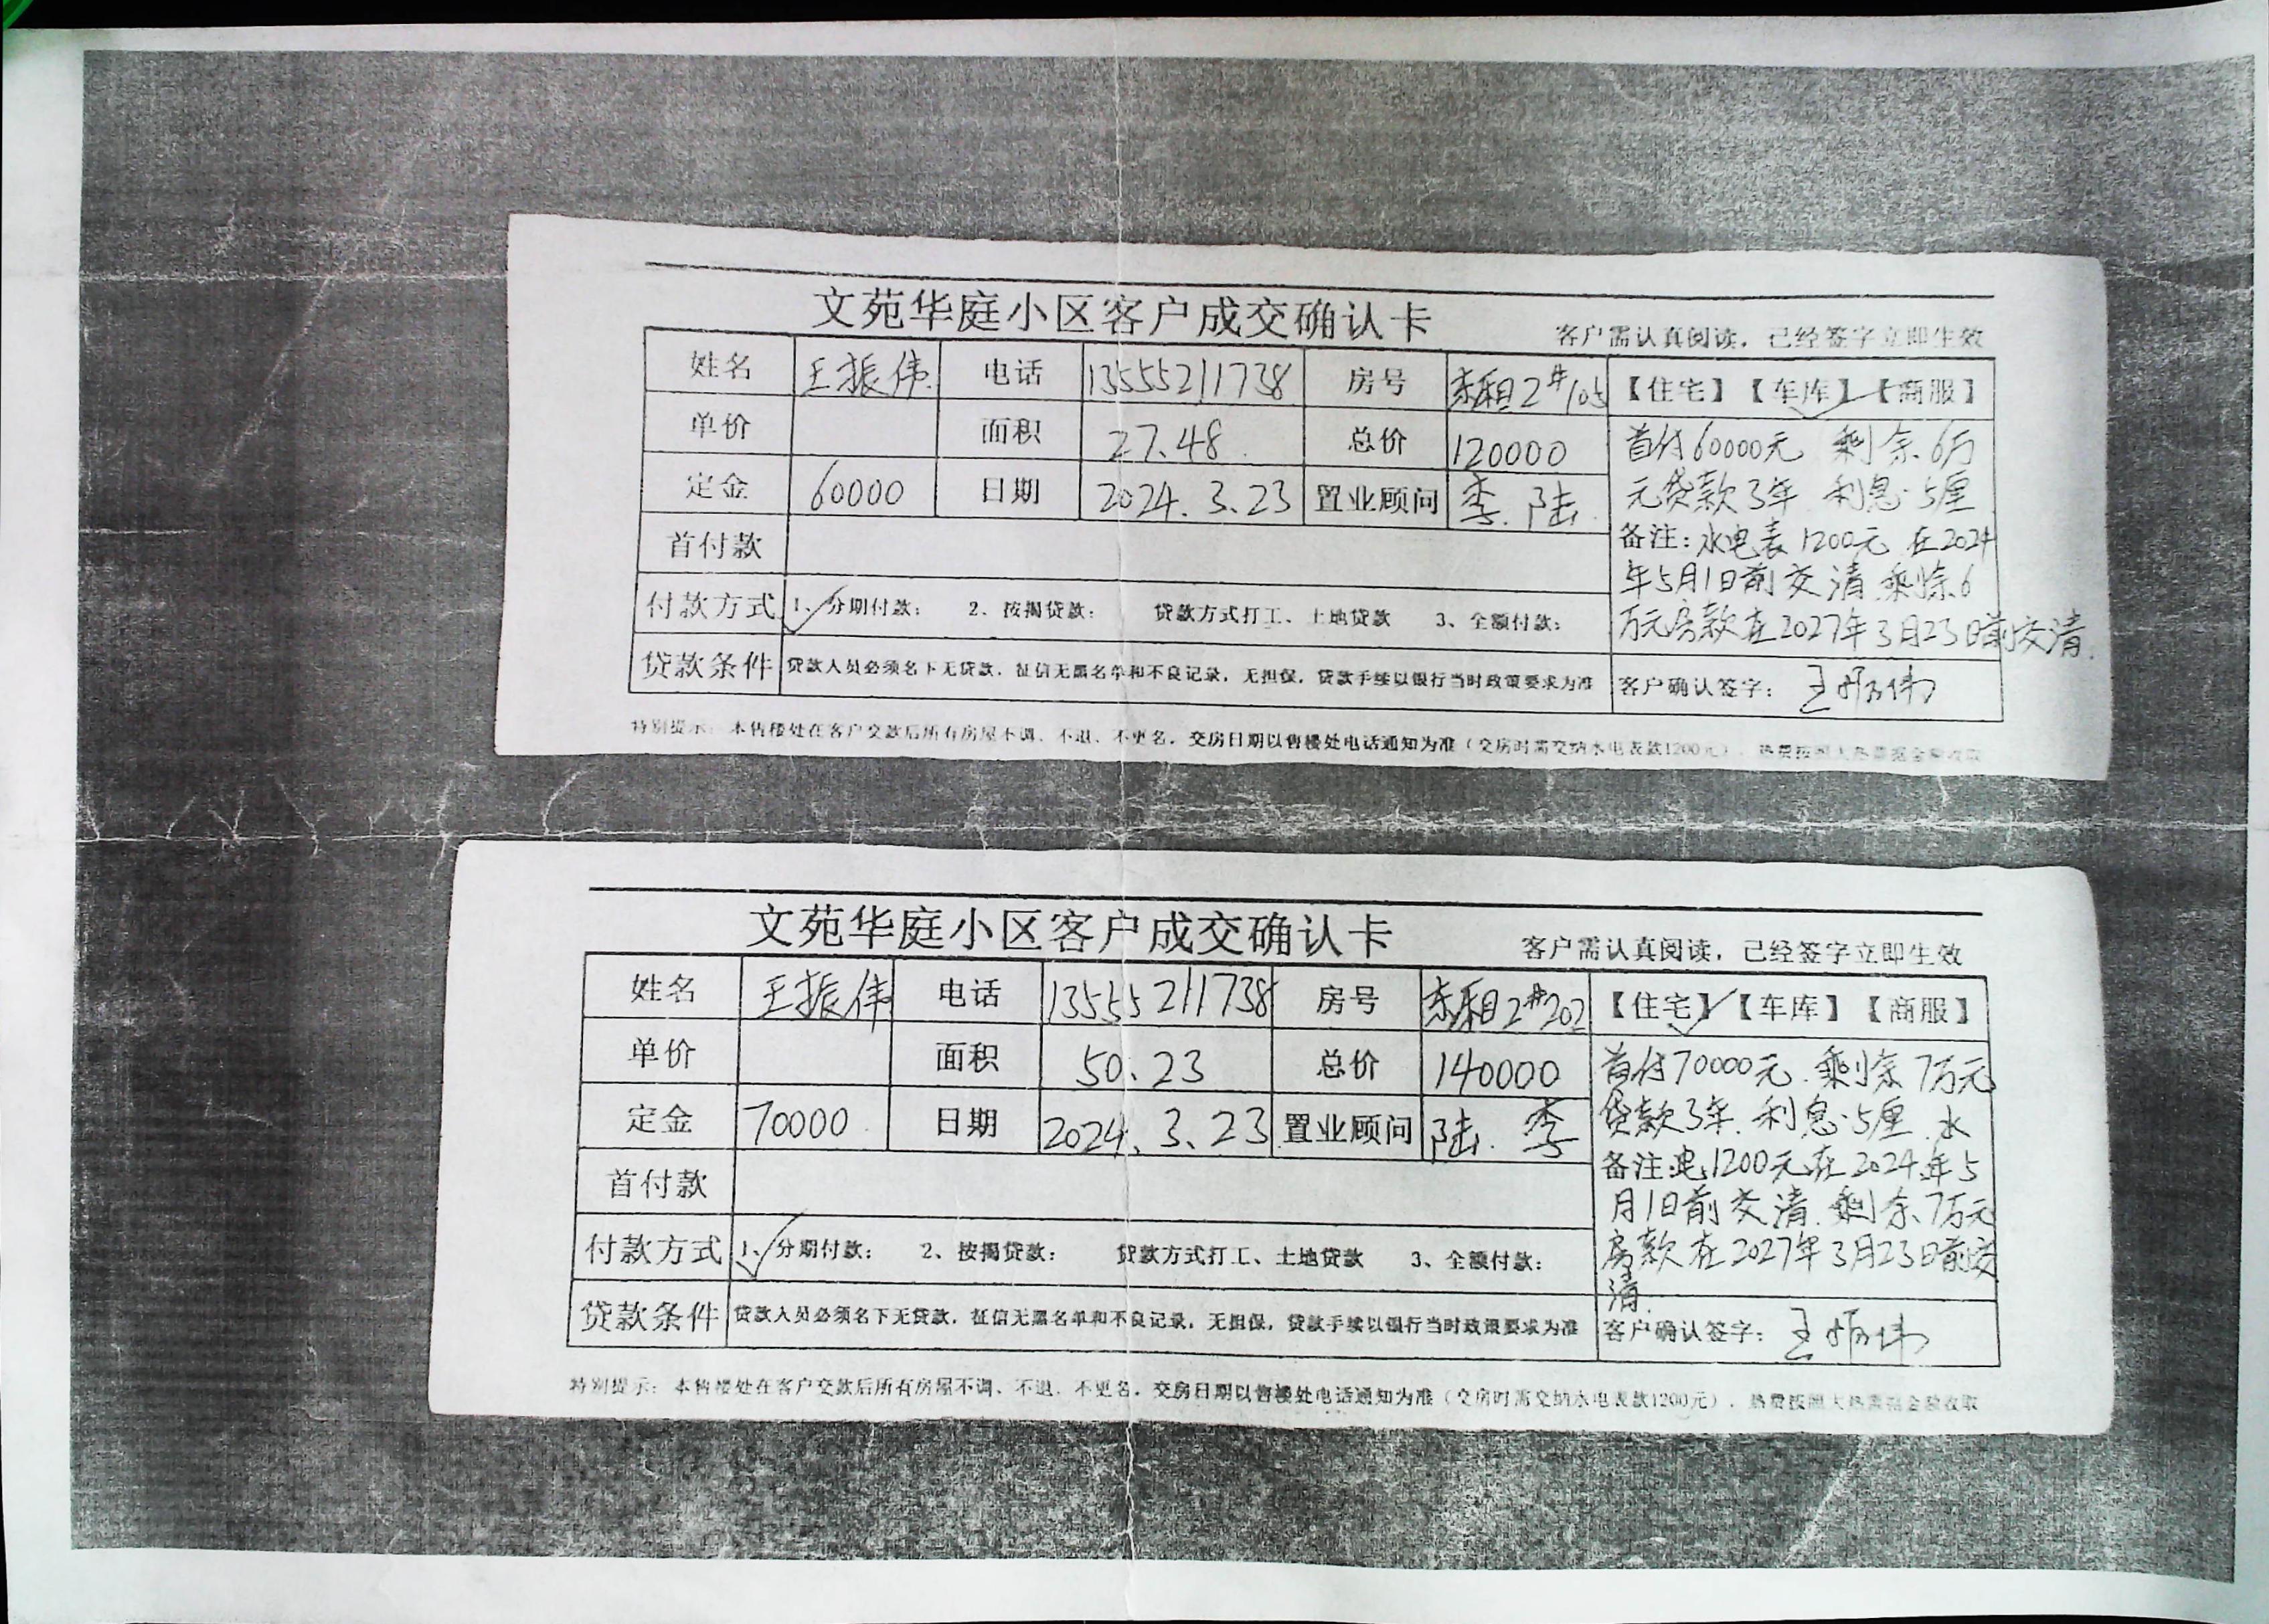 文苑华庭小区客户成交确认卡 客户需认真阅读，已经签字立即生效
姓名 王振伟 电话 13555211738 房号 2#105 【住宅】【车库】【商服】
单价 面积 27.48 总价 120000 首付60000元 剩余6万
定金 60000 日期 2024.3.23 置业顾问 李 陆 元贷款3年 利息5厘
首付款 备注：水电表1200元 在2024
年5月1日前交清 剩余6
付款方式 1、分期付款； 2、按揭贷款： 贷款方式打工、土地贷款 3、全额付款； 万元房款在2027年3月23日前交清.
贷款条件 贷款人员必须名下无贷款，征信无黑名单和不良记录，无担保，贷款手续以银行当时政策要求为准 客户确认签字： 王振伟
特别提示：本售楼处在客户交款后所有房屋不调、不退、不更名，交房日期以售楼处电话通知为准（交房时需交纳水电表款1200元），
文苑华庭小区客户成交确认卡 客户需认真阅读，已经签字立即生效
姓名 王振伟 电话 13555211738 房号 2#202 【住宅】【车库】【商服】
单价 面积 50.23 总价 140000 首付70000元.剩余7万元
定金 70000 日期 2024.3.23 置业顾问 陆 李 贷款3年.利息5厘 水
首付款 备注：电1200元在2024年5
月1日前交清.剩余7万元
付款方式 1、分期付款； 2、按揭贷款： 贷款方式打工、土地贷款 3、全额付款； 房款在2027年3月23日前交
清.
贷款条件 贷款人员必须名下无贷款，征信无黑名单和不良记录，无担保，贷款手续以银行当时政策要求为准 客户确认签字： 王振伟
特别提示：本售楼处在客户交款后所有房屋不调、不退、不更名，交房日期以售楼处电话通知为准（交房时需交纳水电表款1200元），